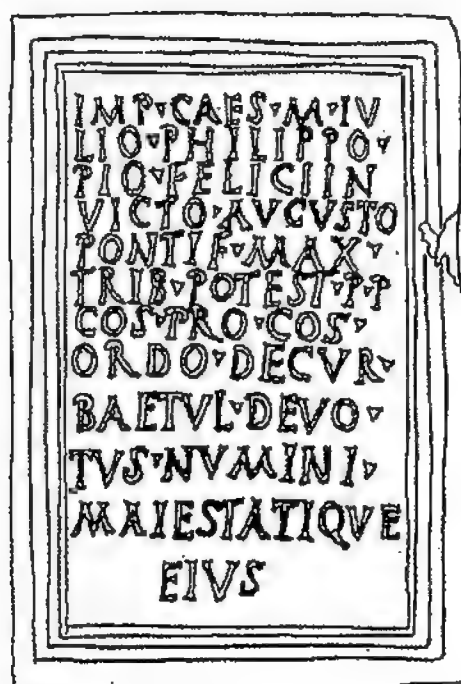 IMP▿CAES▿M▿IV
LIO▿PHILIPPO▿
PIO▿FELICI IN
VICTO▿AVCVSTO
PONTIF▿MAX▿
TRIB▿POTEST▿P▿P
COS▿PRO▿COS▿
ORDO▿DECVR▿
BAETVL▿DEVO▿
TVS▿NVMINI▿
MAIESTATIQVE
EIVS